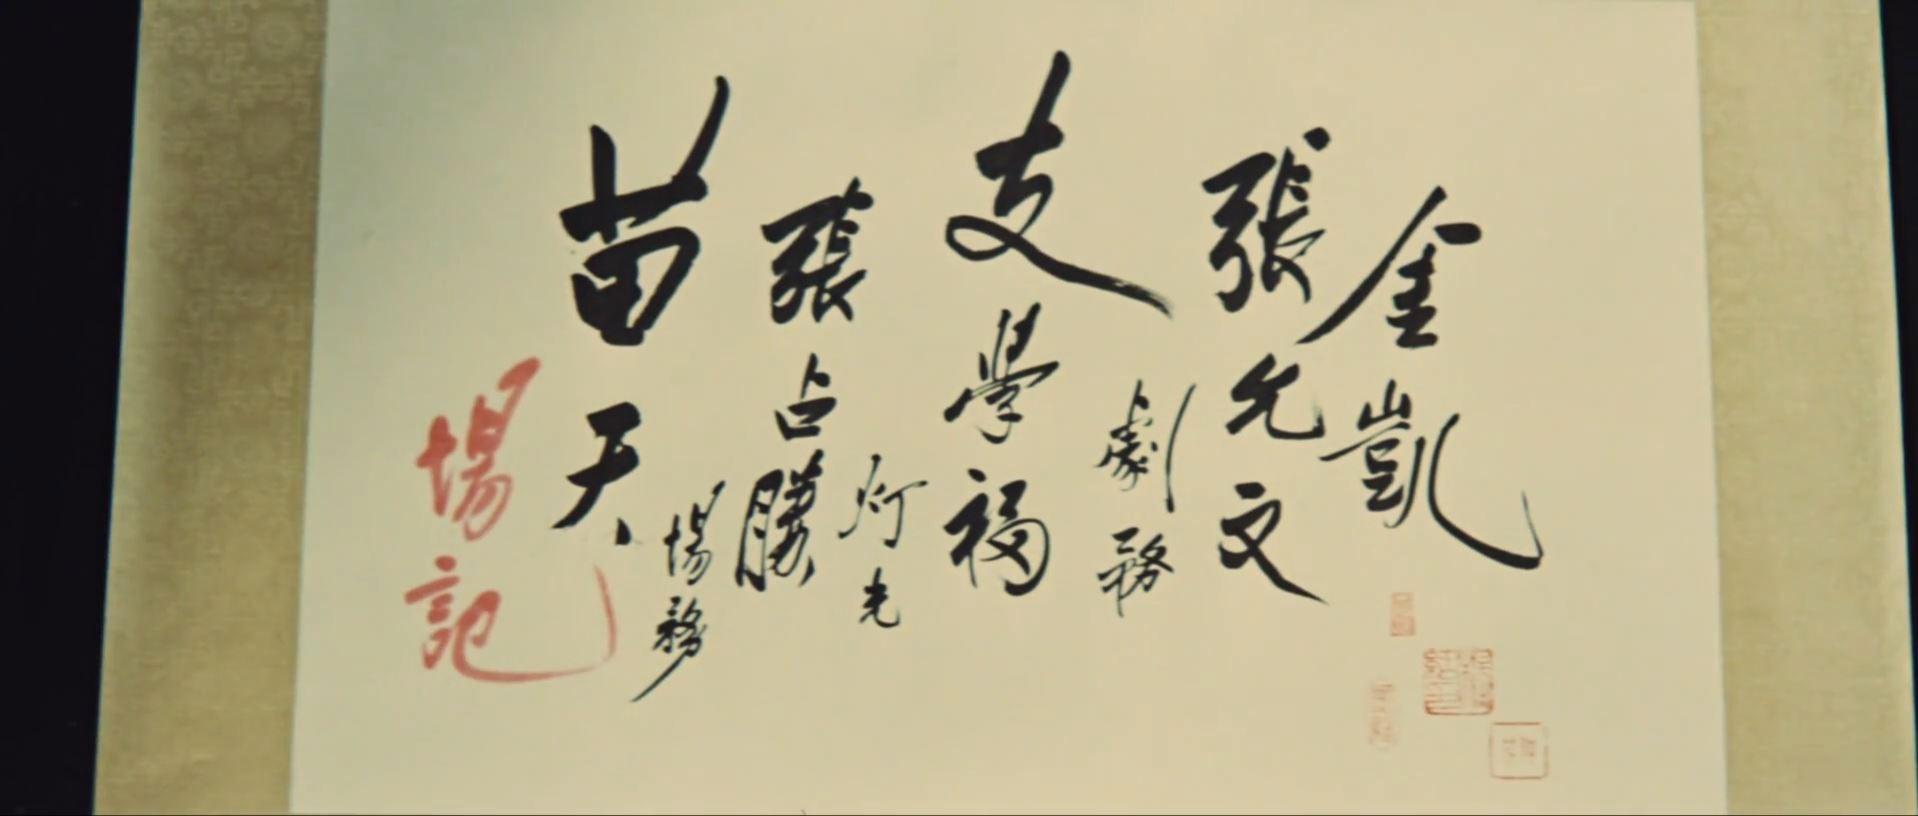 金凱
張允文
劇務
支學福
灯光
張占勝
場務
苗天
場記